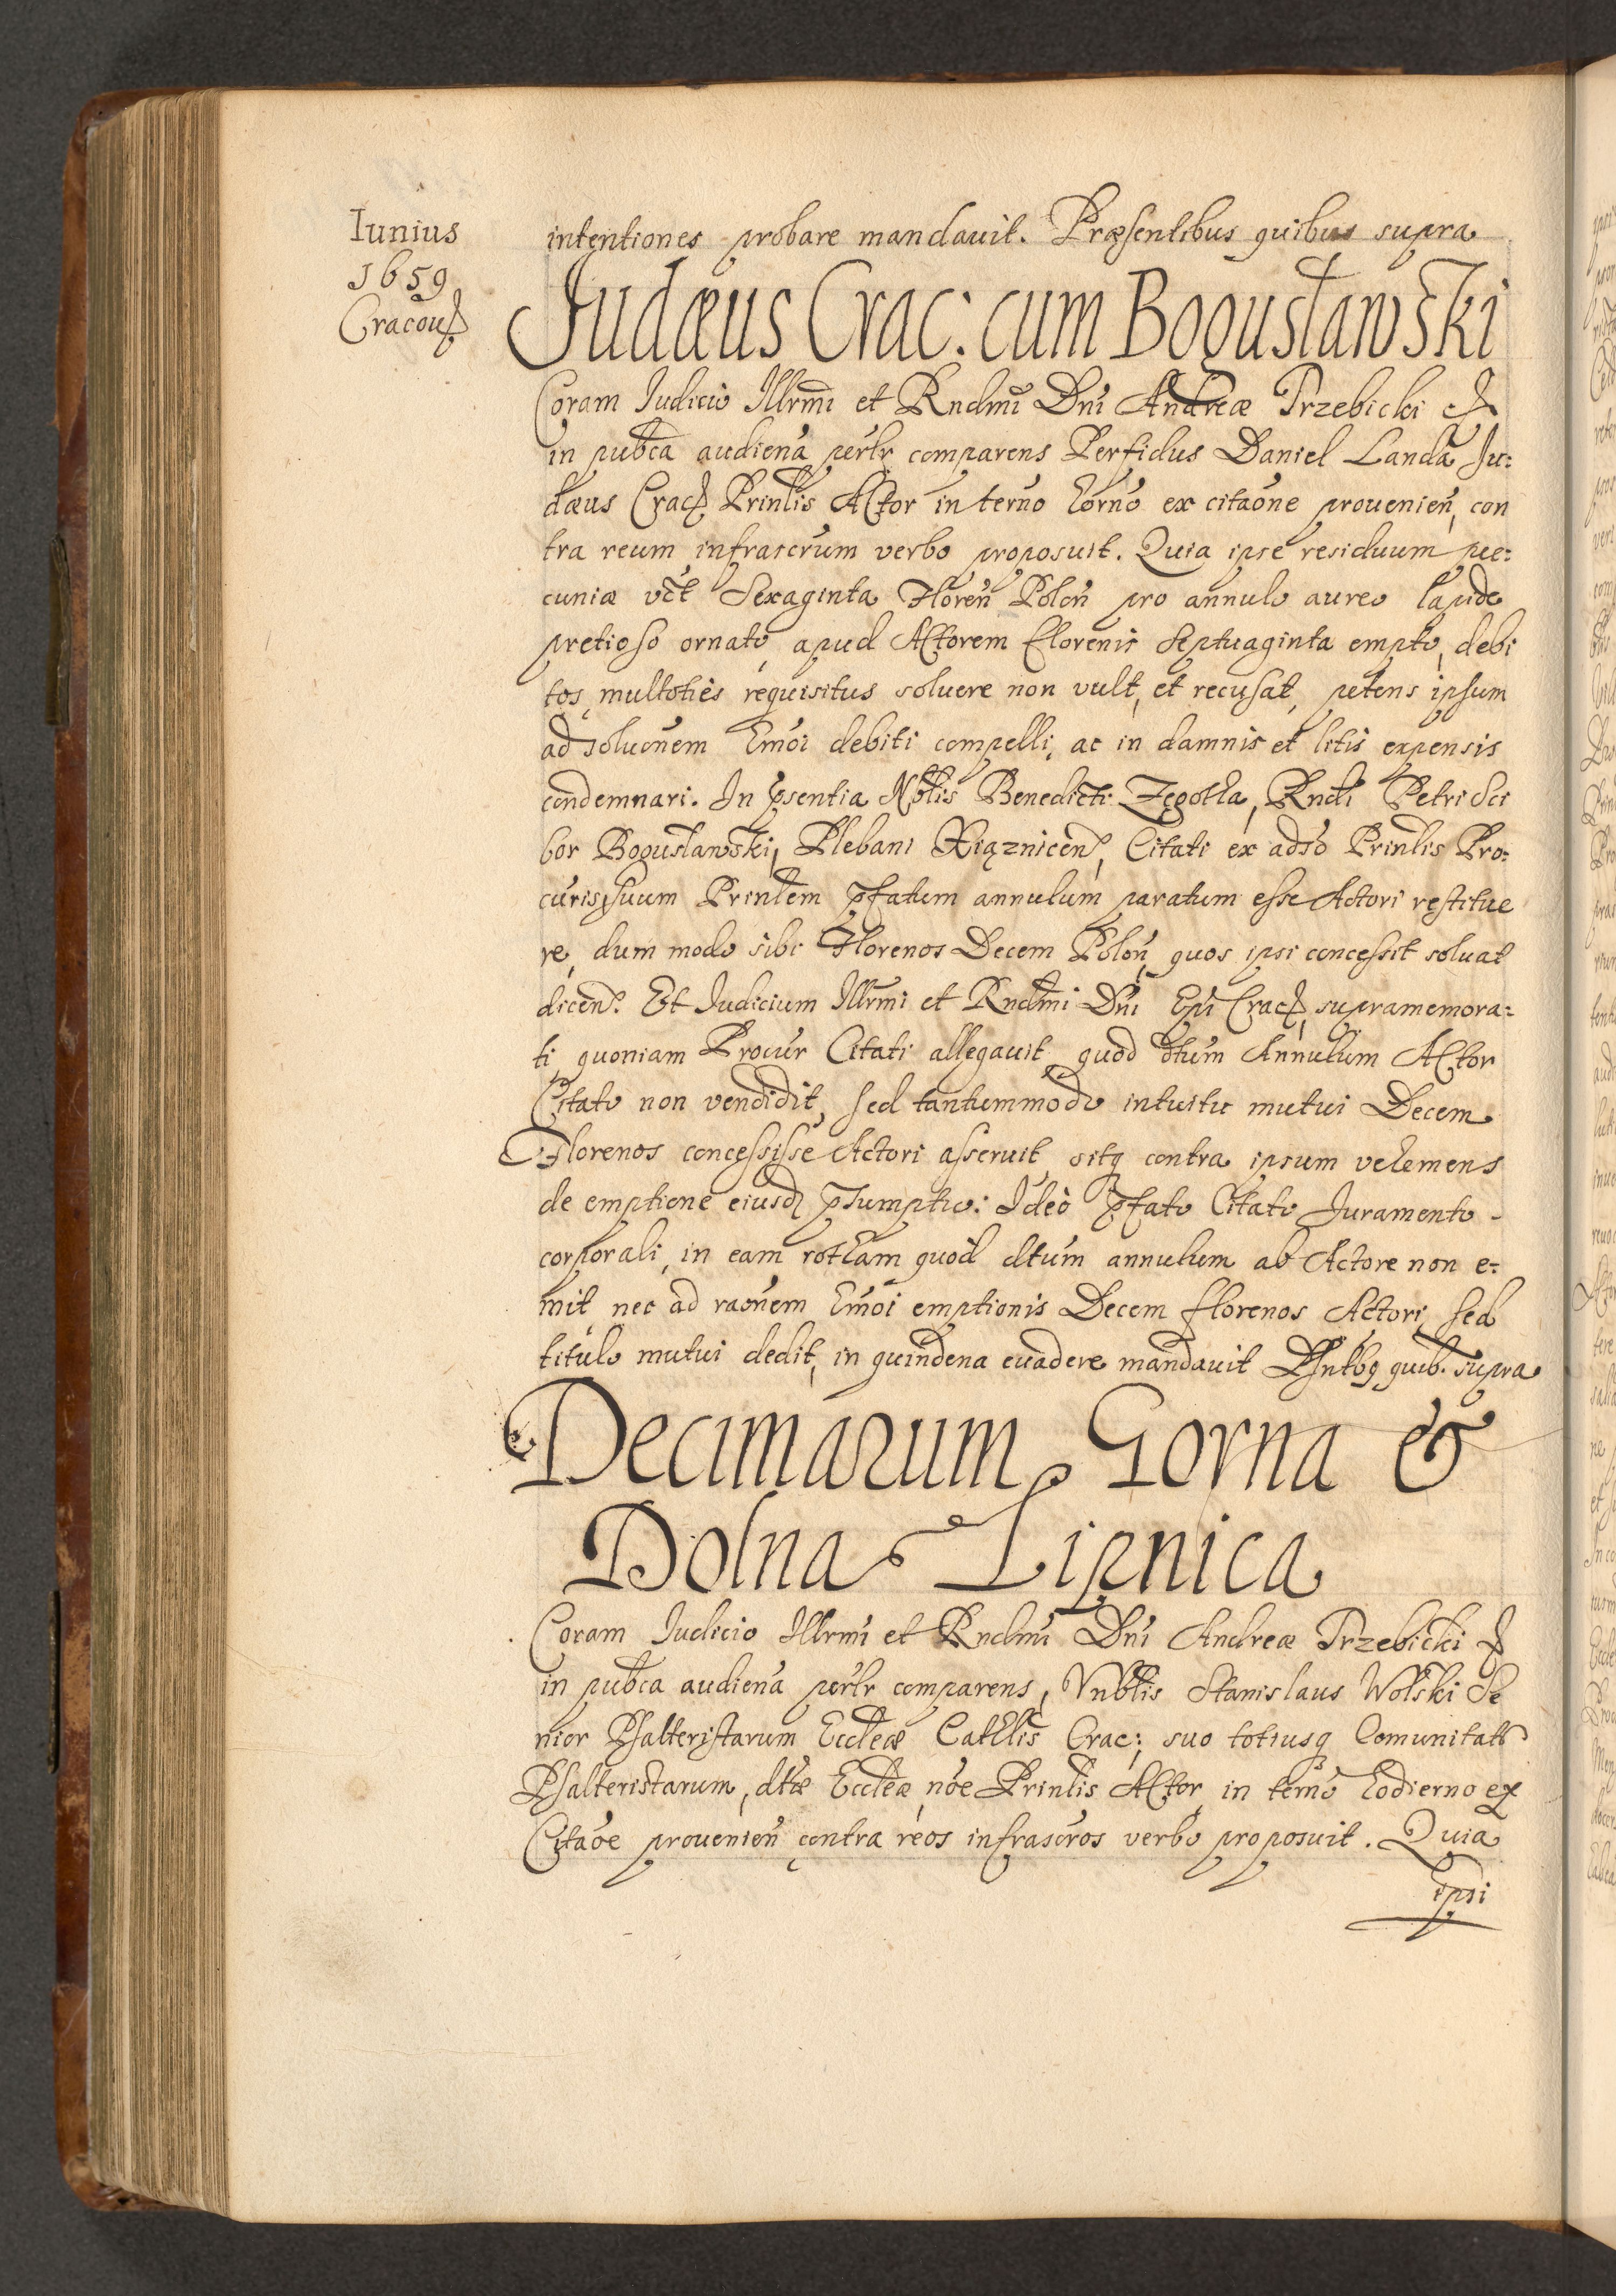 Iunius
1659
Cracou
intentiones probare mandauit. Præsentibus quibus supra
Judæus Crac: cum Bogusławski
Coram Iudicio Illrmi et Rndmi Dni Andreæ Trzebicki etc
in pubca audiena perlr comparens Perfidus Daniel Landa Iu:
dæus Crac Prinlis Actor in terno horno ex citaone prouenien, con
tra reum infrascrum verbo proposuit. Quia ipse residuum pe:
cuniæ vct Sexaginta Floren Polon pro annulo aureo lapide
pretioso ornato, apud Actorem florenis septuaginta empto, debi
tos, multoties requisitus soluere non vult, et recusat, petens ipsum
ad soluonem hmoi debiti compelli, ac in damnis et litis expensis
condemnari. In psentia Nblis Benedicti Zegotha, Rndi Petri Sci
bor Bogusławski, Plebani Xiąznicen, Citati ex adso Prinlis Pro:
curis, suum Prinlem pfatum annulum paratum esse Actori restitue
re, dum modo sibi Florenos Decem Polon, quos ipsi concessit soluat
dicen. Et Iudicium Illrmi et Rndmi Dni Epi Crac, supramemora:
ti, quoniam Procur Citati allegauit, quod dtum Annulum Actor
Citato non vendidit, sed tantummodo intuitu mutui Decem
Florenos concessisse Actori asseruit, sitq contra ipsum vehemens
de emptione eiusd psumptio: Ideo pfato Citato Iuramento
corporali, in eam rotham quod dtum annulum ab Actore non e:
mit, nec ad raonem hmoi emptionis Decem florenos Actori, sed
titulo mutui dedit, in quindena euadere mandauit Psntbq quib. supra
Decimarum Gorna &
Dolna Lipnica
Coram Iudicio Illrmi et Rndmi Dni Andreæ Trzebicki etc
in pubca audiena perlr comparens, Vnblis Stanislaus Wolski Se
nior Psalteristarum Eccleæ Cathlis Crac:, suo totiusq Comunitatis
Psalteristarum, dtæ Eccleæ, noe Prinlis Actor, in terno hodierno ex
Citaoe prouenien contra reos infrascros verbo proposuit. Quia
ipsi